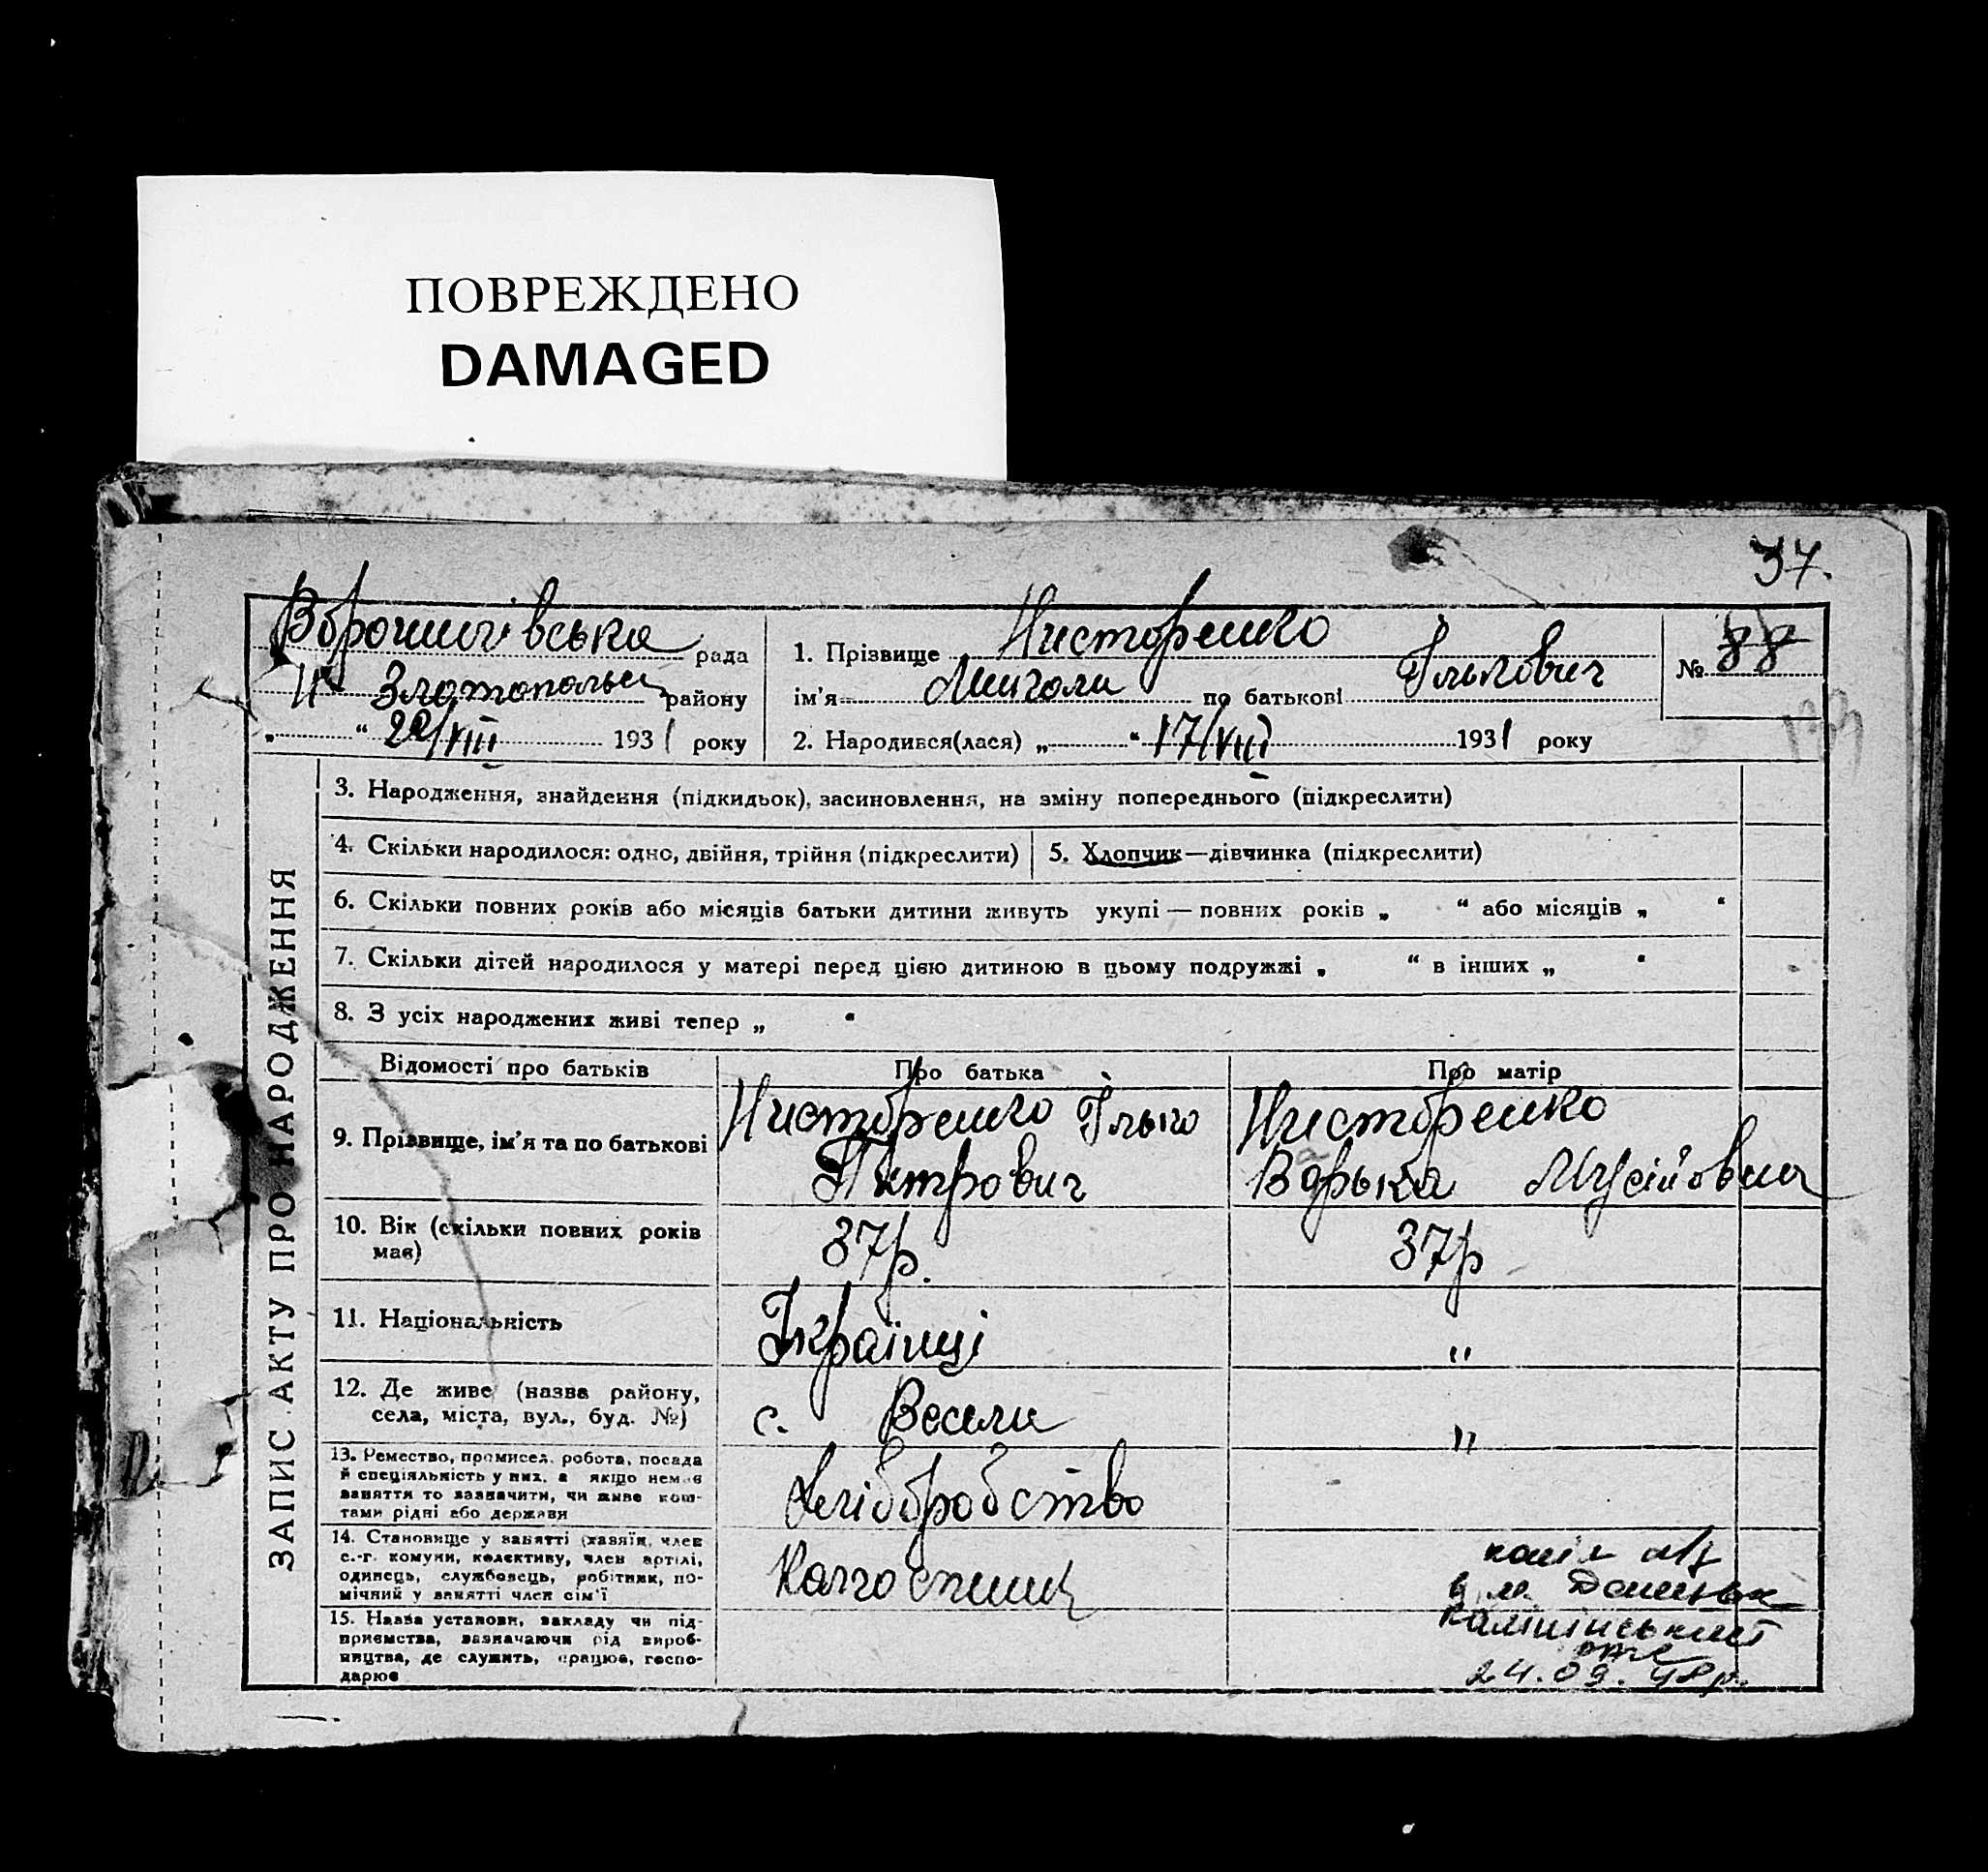 ПОВРЕЖДЕНО
DAMAGED
37.
рада
Златопольськ району
„ “ 22/VIII 1931 року
1. Прізвище Нисторенко
ім'я Микола по батькові Ількович
№ 88
2. Народився(лася) „ “ 17/VIII 1931 року
ЗАПИС АКТУ ПРО НАРОДЖЕННЯ
3. Народження, знайдення (підкидьок), засиновлення, на зміну попереднього (підкреслити)
4. Скільки народилося: одно, двійня, трійня (підкреслити)
5. Хлопчик—дівчинка (підкреслити)
6. Скільки повних років або місяців батьки дитини живуть укупі — повних років „ “ або місяців „ “
7. Скільки дітей народилося у матері перед цією дитиною в цьому подружжі „ “ в інших „ “
8. З усіх народжених живі тепер „ “
Відомості про батьків
Про батька
Про матір
9. Прізвище, ім'я та по батькові
Нисторенко Ілько
Петрович
Нисторенко
Варька Мусійовна
10. Вік (скільки повних років
має)
37р.
37р
11. Національність
Українці
"
12. Де живе (назва району,
села, міста, вул., буд. №)
с. Весели
"
13. Ремество, промисел, робота, посада
й спеціяльність у них, а якщо немає
заняття то зазначити, чи живе кош-
тами рідні або держави
Хліборобство
14. Становище у занятті (хазяїн, член
с.-г. комуни, колективу, член артілі,
одинець, службовець, робітник, по-
мічний у занятті член сім'ї
Колгоспник
15. Назва установи, закладу чи під-
приємства, зазначаючи рід вироб-
ництва, де служить, працює, госпо-
дарює
в м. Донецьк
Калінінський
24.09.98р.